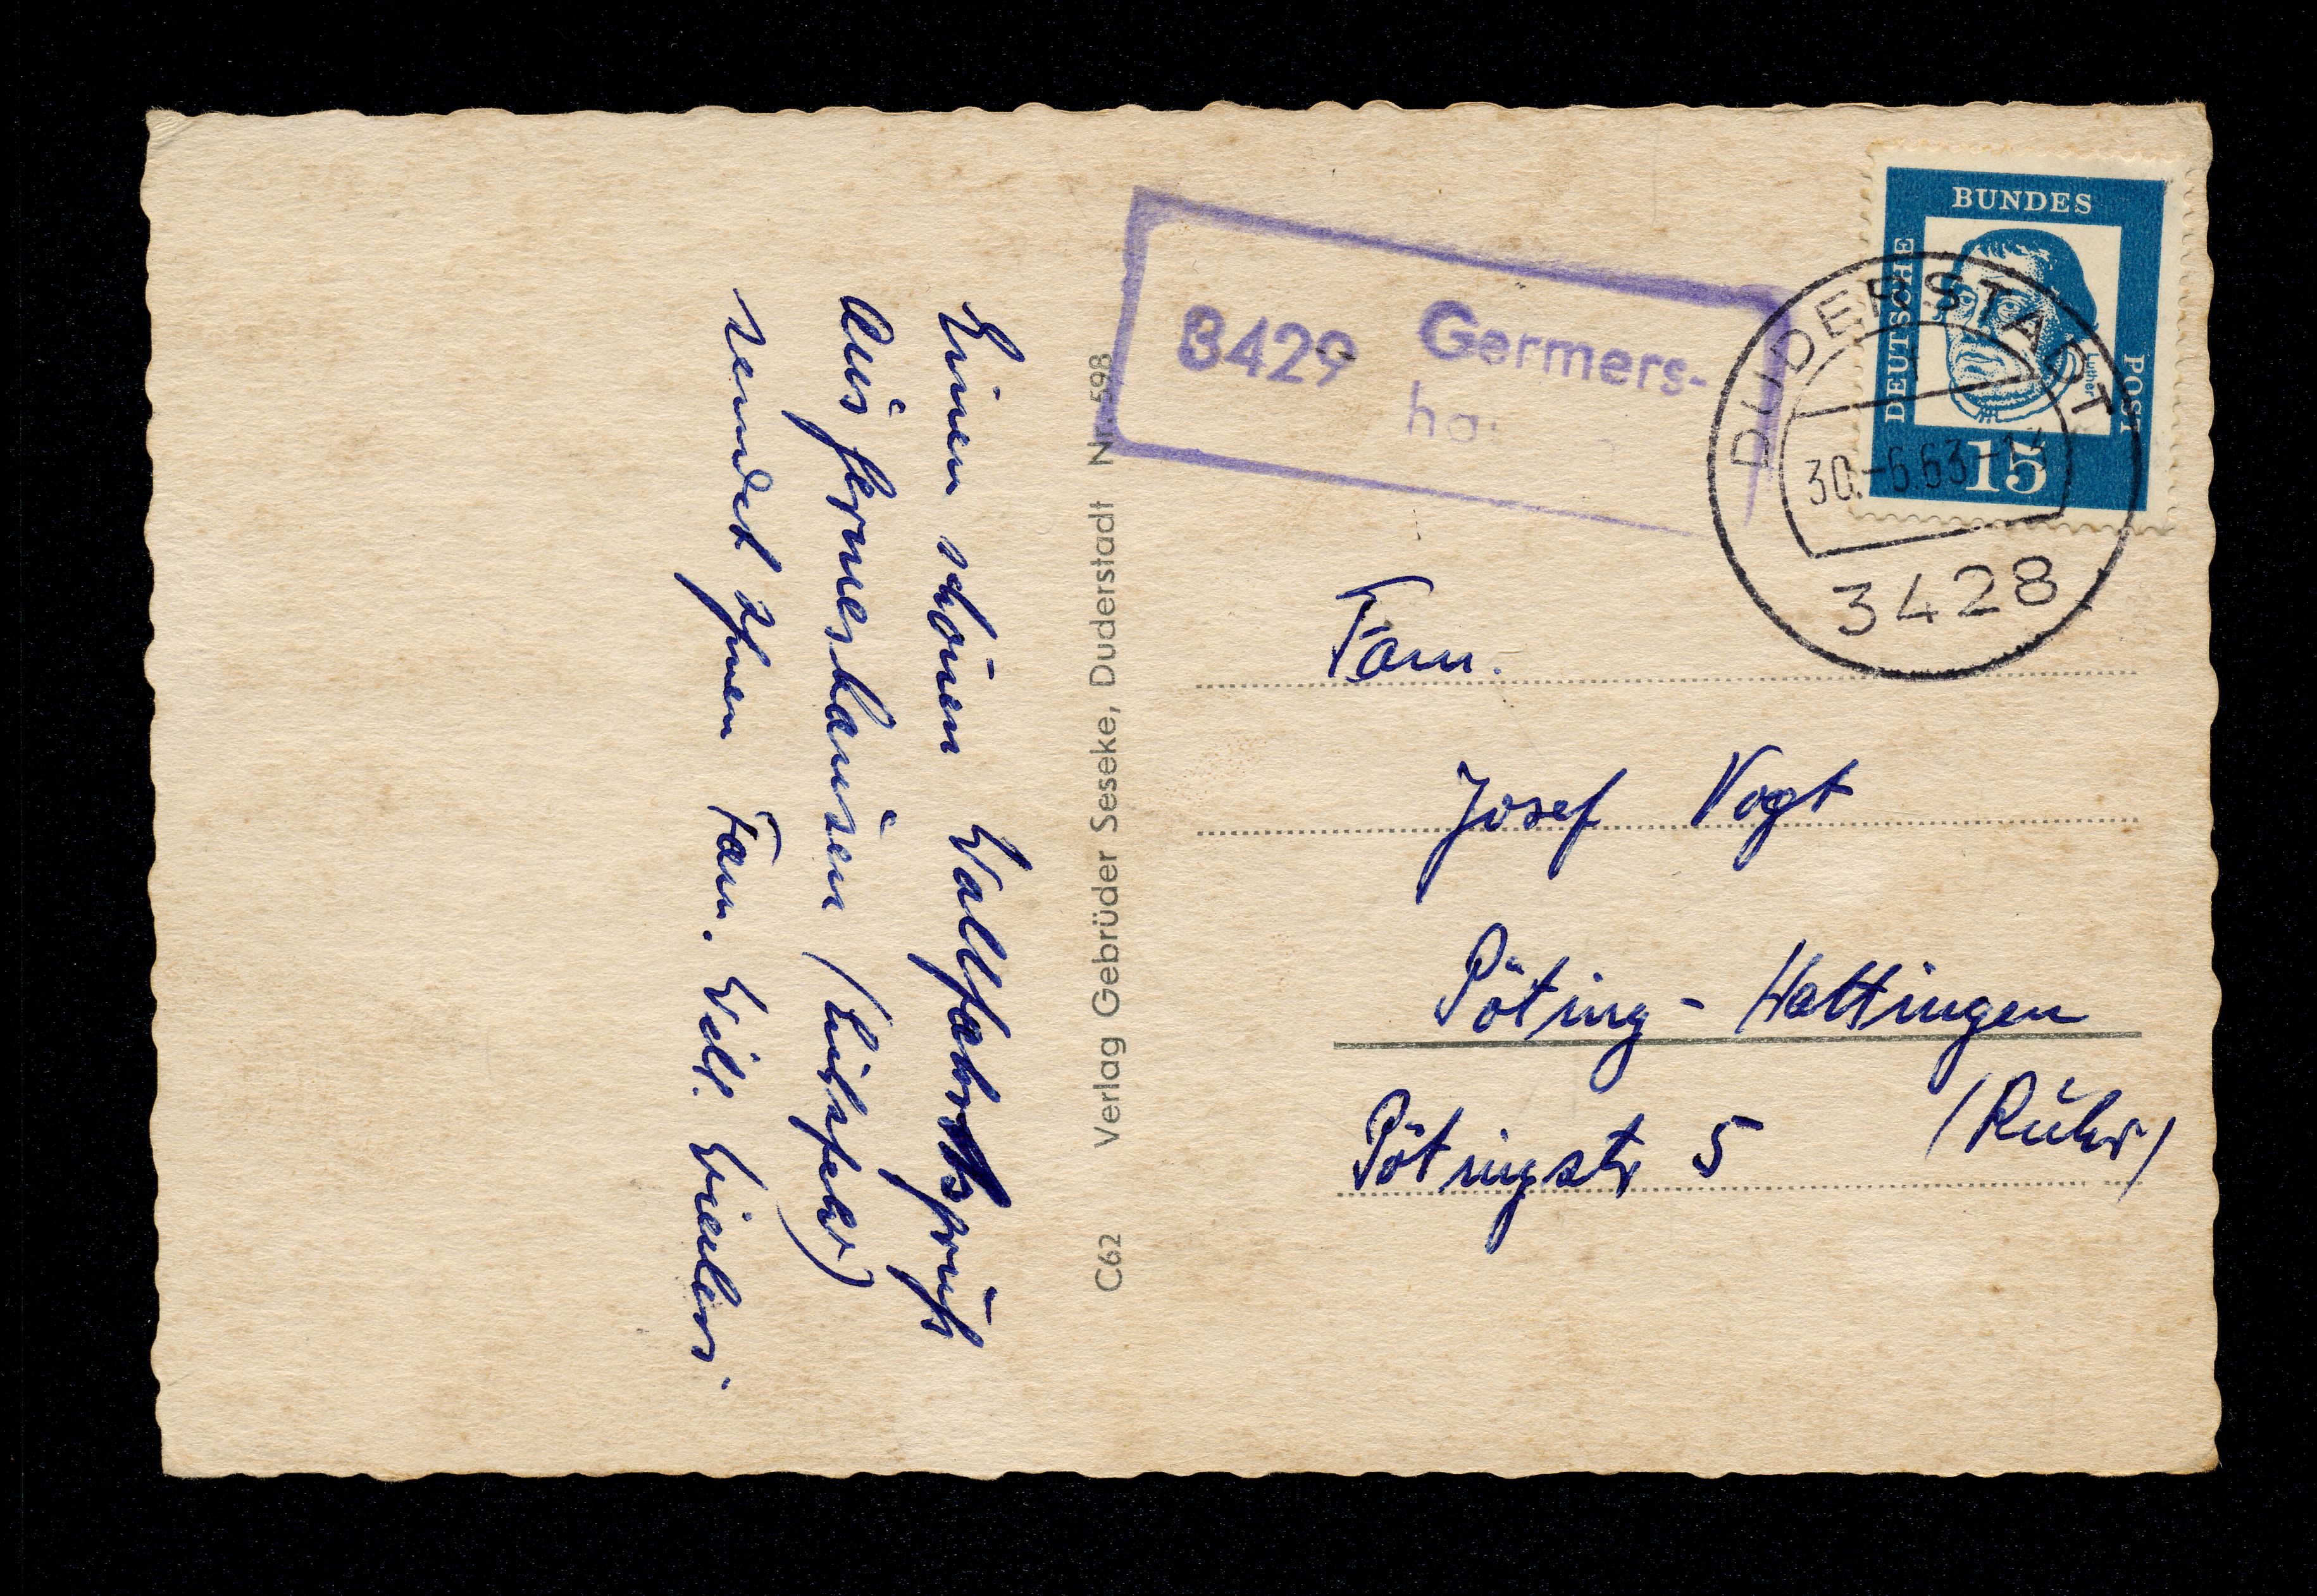 Einen schönen Wallfahrtsgruß
aus Germershausen (Eichsfeld)
sendet Ihnen Fam. Wilh.
C62 Verlag Gebrüder Seseke, Duderstadt Nr. 598
3429 Germers-
ha
BUNDES
DEUTSCHE
POST
Luther
15
DUDERSTADT
30.-6.63-14
3428
Fam.
Josef Vogt
Pöting - Hattingen
(Ruhr)
Pötingstr 5